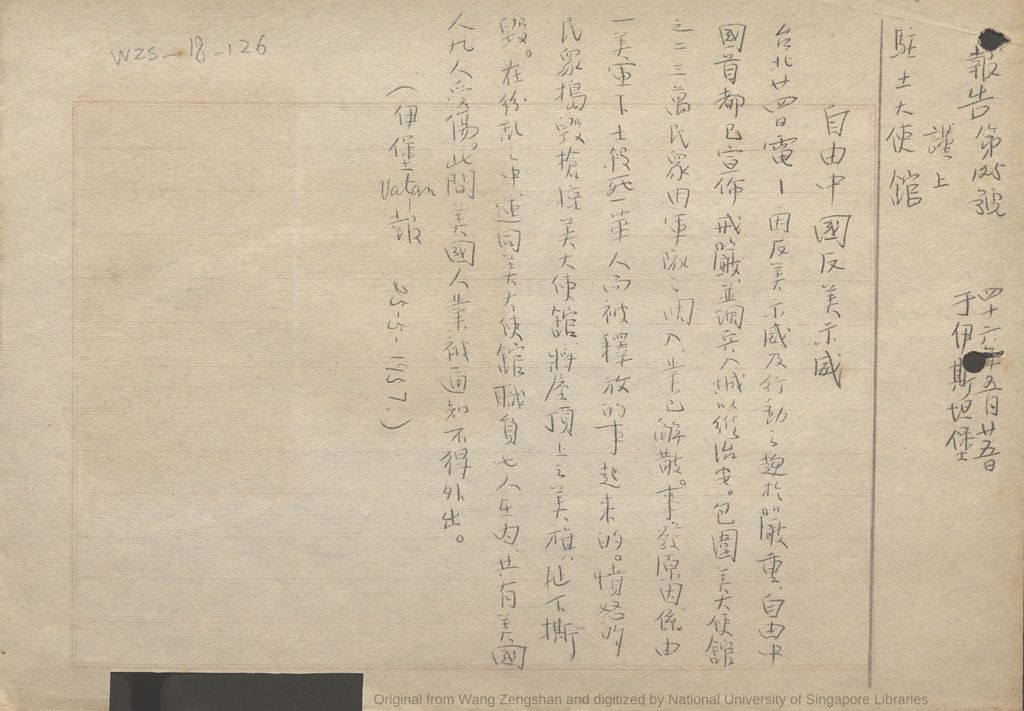 報告第125號
謹上
四十六年五月廿五日
于伊斯坦堡
駐土大使館
自由中國反美示威
台北廿四日電—因反美示威及行動之趨於嚴重,自由中
國首都已宣佈戒嚴,並調兵入城以維治安。包圍美大使館
之二三萬民眾因軍隊之調入,業已解散。事發原因,係由
一美軍下士殺死一華人而被釋放的事起來的。憤怒的
民眾搗毀搶擄美大使館,將屋頂上之美旗,扯下撕
毀。在紛亂之中,連同美大使館職員七人在內,共有美國
人九人受傷。此間美國人業被通知不得外出。
(伊堡Vatan報 25-5-1957.)
WZS-18-126
Original from Wang Zengshan and digitized by National University of Singapore Libraries